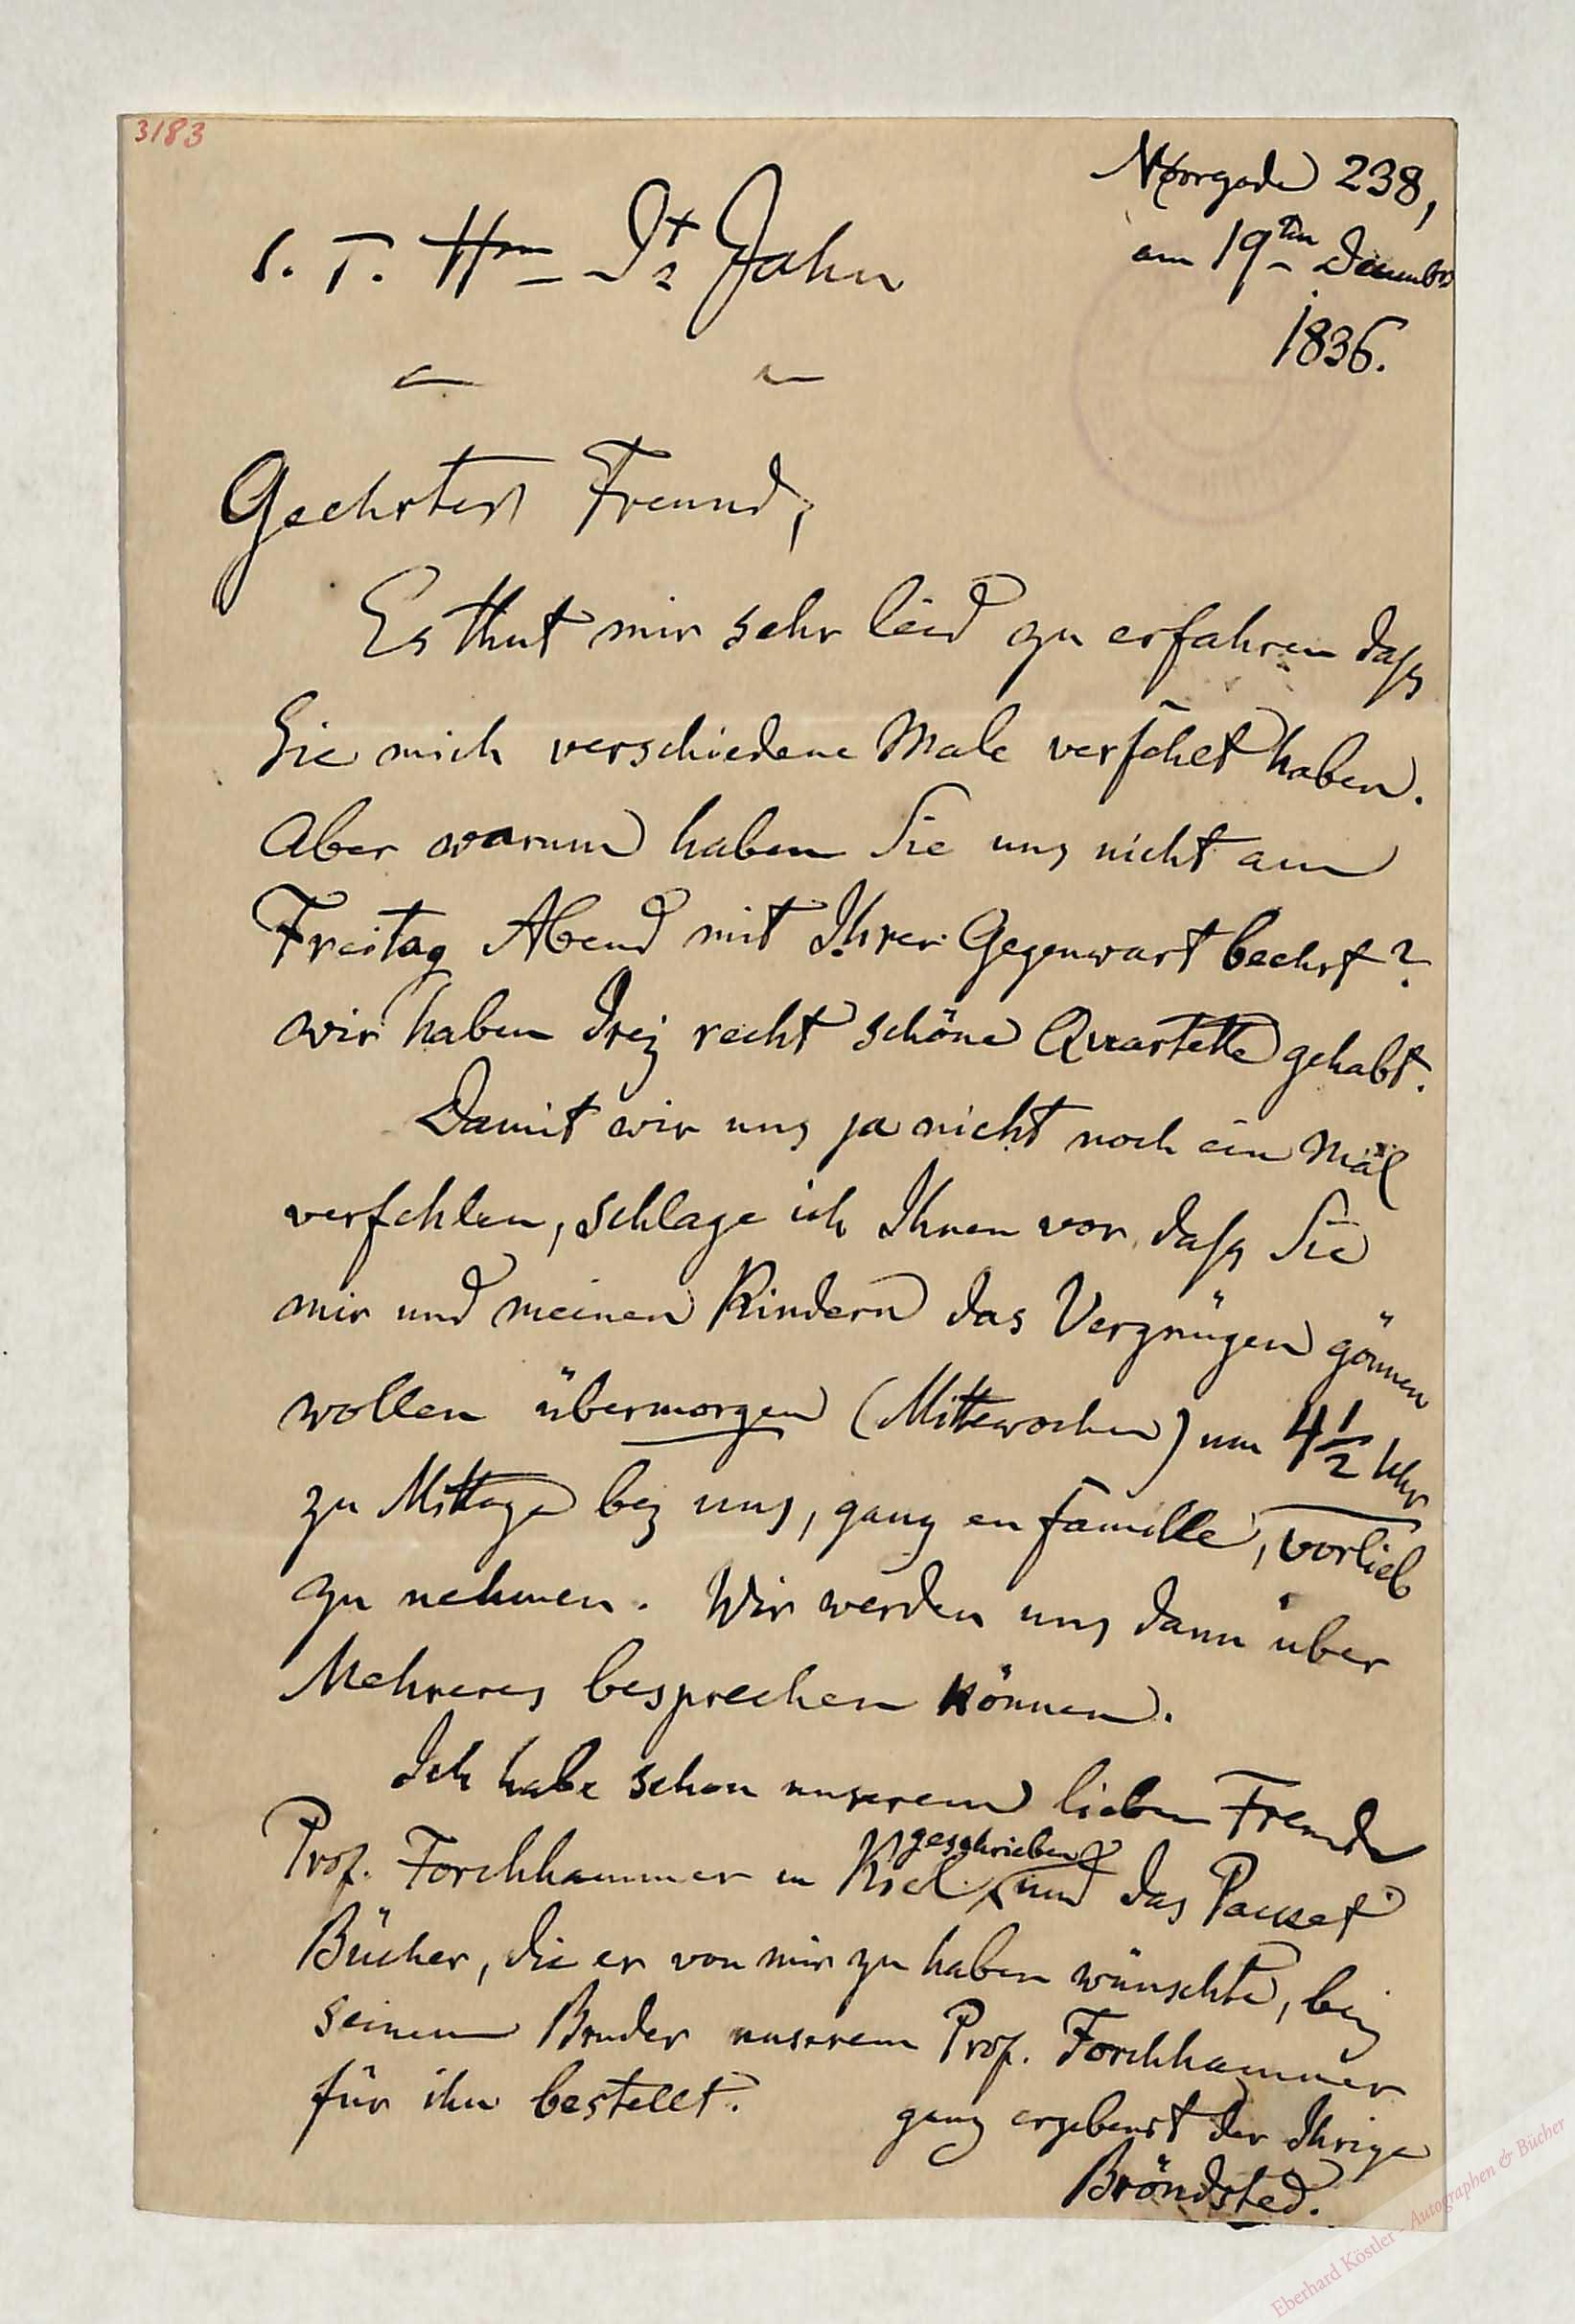 3183
Nörregade 238,
am 19ten December
1836.
S. T. Hrn Dr Jahn
Geehrter Freund,
Es thut mir sehr leid zu erfahren daſs
Sie mich verschiedene Male verfehlt haben.
Aber warum haben Sie uns nicht am
Freitag Abend mit Ihrer Gegenwart beehrt?
wir haben drej recht schöne Quartette gehabt.
Damit wir uns ja nicht noch ein Mal
verfehlen, schlage ich Ihnen vor daſs Sie
mir und meinen Kindern das Vergnügen gönnen
wollen übermorgen (Mittewochen) um 4 1/2 Uhr
zu Mittage bey uns, ganz en famille, vorlieb
zu nehmen. Wir werden uns dann über
Mehreres besprechen können.
Ich habe schon unserem lieben Freunde
Prof. Forchhammer in Kiel geschrieben und das Packet
Bücher, die er von mir zu haben wünschte, bey
seinem Bruder unserem Prof. Forchhammer
für ihn bestellt.
ganz ergebenst der Ihrige
Bröndsted.
Eberhard Köstler - Autographen & Bücher